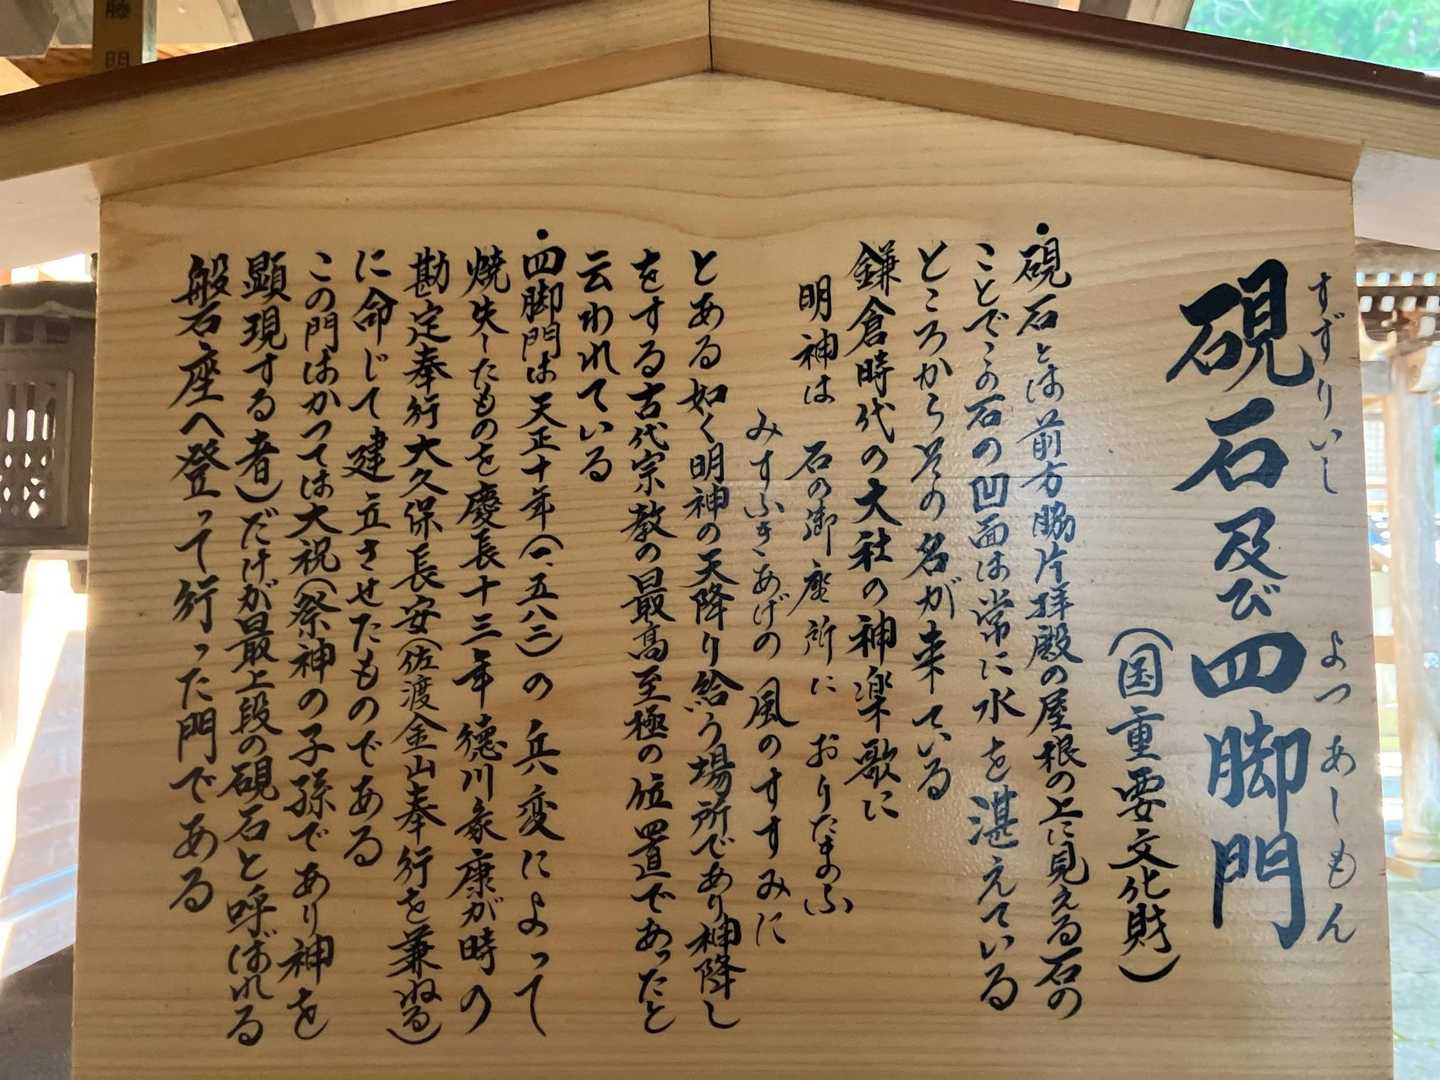 すずりいし　よつあしもん
硯石及び四脚門
（国重要文化財）
・硯石とは前方脇片拝殿の屋根の上に見える石の
ことでこの石の凹面は常に水を湛えている
ところからその名が来ている
鎌倉時代の大社の神楽歌に
明神は　石の御座所に　おりたまふ
みすふきあげの　風のすすみに
とある如く明神の天降り給う場所であり神降し
をする古代宗教の最高至極の位置であったと
云われている
・四脚門は天正十年（一五八二）の兵変によって
焼失したものを慶長十三年徳川家康が時の
勘定奉行大久保長安（佐渡金山奉行を兼ねる）
に命じて建立させたものである
この門はかつては大祝（祭神の子孫であり神を
顕現する者）だけが最上段の硯石と呼ばれる
磐石座へ登って行った門である
藤門